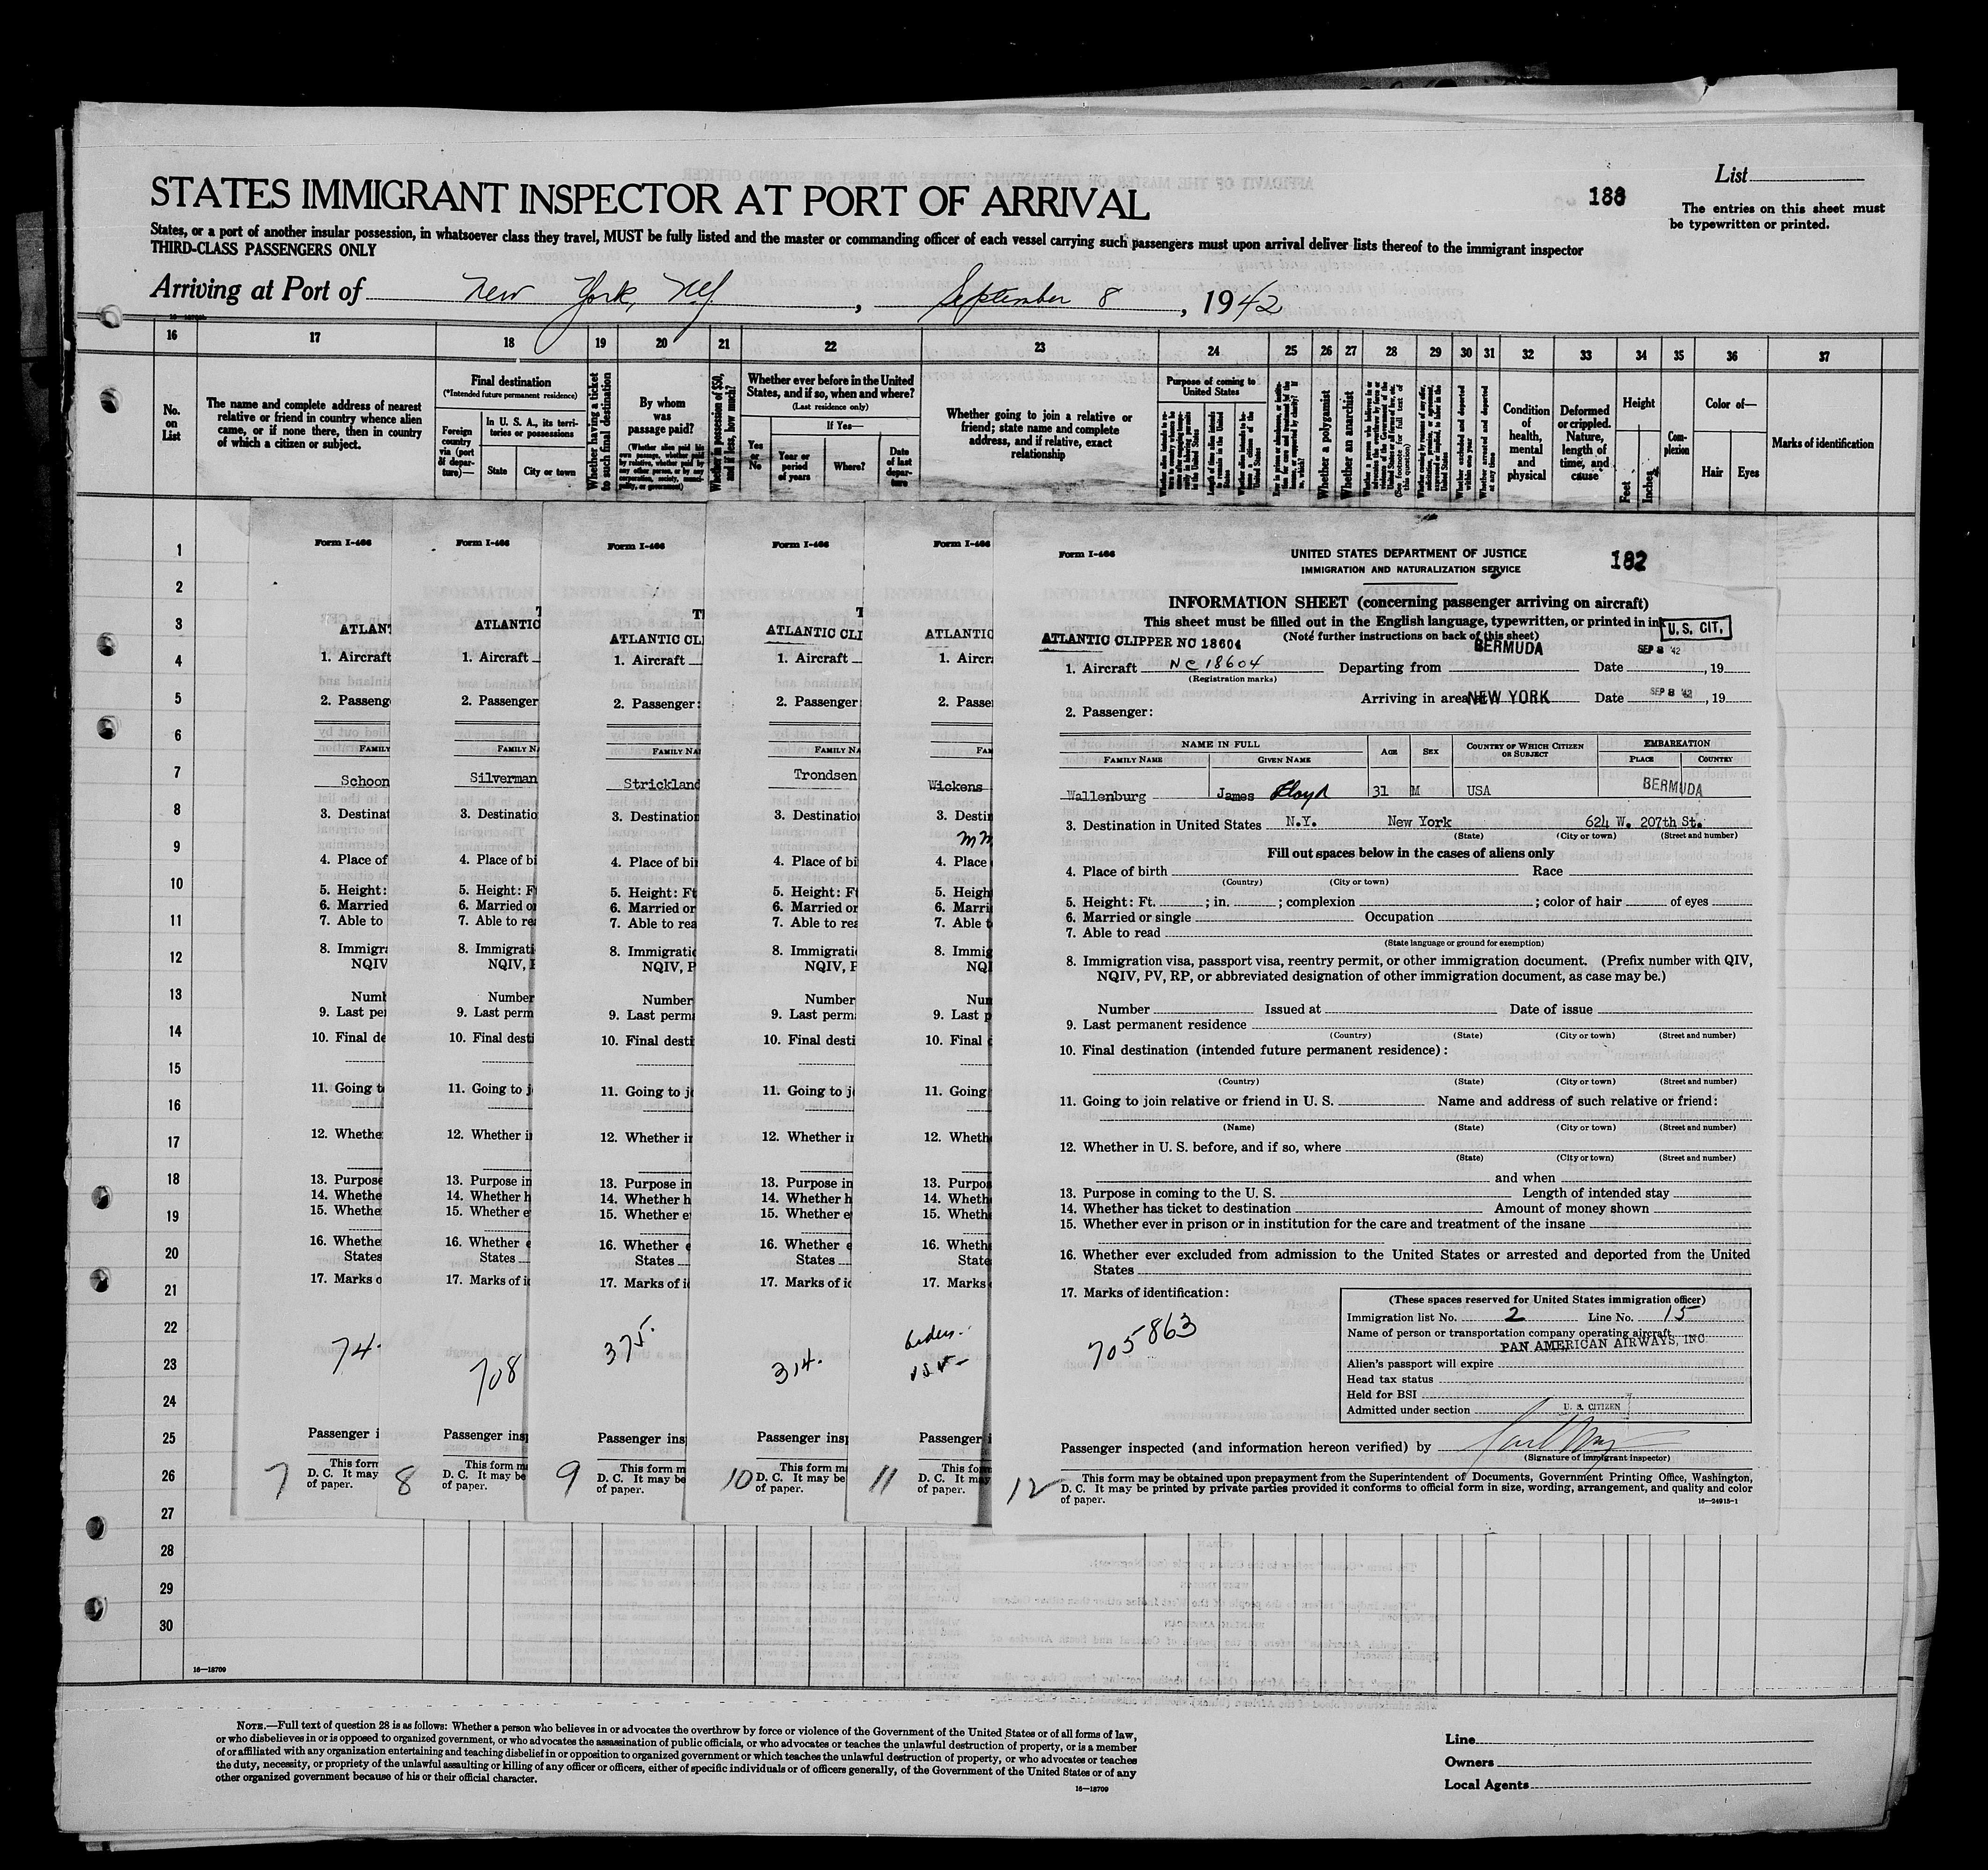 STATES IMMIGRANT INSPECTOR AT PORT OF ARRIVAL
188
List
The entries on this sheet must
be typewritten or printed.
States, or a port of another insular possession, in whatsoever class they travel, MUST be fully listed and the master or commanding officer of each vessel carrying such passengers must upon arrival deliver lists thereof to the immigrant inspector
THIRD-CLASS PASSENGERS ONLY
Arriving at Port of New York, NY, September 8, 1942
16 17 18 19 20 21 22 23 24 25 26 27 28 29 30 31 32 33 34 35 36 37
No.
on
List
The name and complete address of nearest
relative or friend in country whence alien
came, or if none there, then in country
of which a citizen or subject.
Final destination
(*Intended future permanent residence)
Foreign
country
via (port
of depar-
ture)—
In U. S. A., its terri-
tories or possessions
State
City or town
Whether having a ticket
to such final destination
By whom
was
passage paid?
(Whether alien paid his
own passage, whether paid
by relative, whether paid by
any other person, or by any
corporation, society, munic-
ipality, or government)
Whether in possession of $50,
and if less, how much?
Whether ever before in the United
States, and if so, when and where?
(Last residence only)
If Yes—
Yes
or
No
Year or
period
of years
Where?
Date
of last
depar-
ture
Whether going to join a relative or
friend; state name and complete
address, and if relative, exact
relationship
Purpose of coming to
United States
Whether a polygamist
Whether an anarchist
Whether excluded and deported
within one year
Whether arrested and deported
at any time
Condition
of
health,
mental
and
physical
Deformed
or crippled.
Nature,
length of
time, and
cause
Height
Feet
Inches
Com-
plexion
Color of—
Hair
Eyes
Marks of identification
1
2
3
4
5
6
7
8
9
10
11
12
13
14
15
16
17
18
19
20
21
22
23
24
25
26
27
28
29
30
16—18709
Form I-466
ATLANT
1. Aircraft
2. Passeng
FAMILY
Schoon
3. Destinat
4. Place of
5. Height:
6. Married
7. Able to
8. Immigra
NQIV
Numb
9. Last pe
10. Final de
11. Going t
12. Whethe
13. Purpose
14. Whethe
15. Whethe
16. Whethe
States
17. Marks o
74.
Passenger i
This form
D. C. It may
of paper.
7
Form I-466
ATLANTIC
1. Aircraft
2. Passenger
FAMILY NA
Silverman
3. Destinatio
4. Place of bi
5. Height: Ft
6. Married or
7. Able to rea
8. Immigrati
NQIV, P
Number
9. Last perm
10. Final desti
11. Going to j
12. Whether i
13. Purpose in
14. Whether h
15. Whether e
16. Whether e
States
17. Marks of i
708
Passenger insp
This form m
D. C. It may be
of paper.
8
Form I-466
ATLANTIC CLI
1. Aircraft
2. Passenger:
FAMILY NA
Strickland
3. Destination
4. Place of bi
5. Height: Ft
6. Married or
7. Able to rea
8. Immigratio
NQIV, P
Number
9. Last perma
10. Final desti
11. Going to j
12. Whether i
13. Purpose in
14. Whether h
15. Whether e
16. Whether e
States
17. Marks of i
375.
Passenger ins
This form m
D. C. It may be
of paper.
9
Form I-466
ATLANTIC CLI
1. Aircraft
2. Passenger
FAMILY NA
Trondsen
3. Destinatio
4. Place of bi
5. Height: Ft
6. Married or
7. Able to rea
8. Immigrati
NQIV, P
Number
9. Last perm
10. Final desti
11. Going to j
12. Whether i
13. Purpose in
14. Whether h
15. Whether e
16. Whether e
States
17. Marks of i
314.
Passenger insp
This form m
D. C. It may be
of paper.
10
Form I-466
ATLANTIC
1. Aircr
2. Passe
FAM
Wickens
3. Destin
4. Place
5. Heigh
6. Marri
7. Able t
8. Immig
NQI
Num
9. Last p
10. Final
11. Going
12. Wheth
13. Purpos
14. Wheth
15. Wheth
16. Wheth
State
17. Marks
Passenger i
This for
D. C. It may
of paper.
11
Form I-466
UNITED STATES DEPARTMENT OF JUSTICE
IMMIGRATION AND NATURALIZATION SERVICE
182
INFORMATION SHEET (concerning passenger arriving on aircraft)
This sheet must be filled out in the English language, typewritten, or printed in ink
(Note further instructions on back of this sheet)
U. S. CIT.
ATLANTIC CLIPPER NO 18604
1. Aircraft NC 18604 Departing from BERMUDA Date SEP 8 '42, 19
(Registration marks)
Arriving in area NEW YORK Date SEP 8 '42, 19
2. Passenger:
NAME IN FULL AGE SEX COUNTRY OF WHICH CITIZEN OR SUBJECT EMBARKATION
FAMILY NAME GIVEN NAME PLACE COUNTRY
Wallenburg James Floyd 31 M USA BERMUDA
3. Destination in United States N.Y. New York 624 W. 207th St.
(State) (City or town) (Street and number)
Fill out spaces below in the cases of aliens only
4. Place of birth Race
(Country) (City or town)
5. Height: Ft. ; in. ; complexion ; color of hair of eyes
6. Married or single Occupation
7. Able to read
(State language or ground for exemption)
8. Immigration visa, passport visa, reentry permit, or other immigration document. (Prefix number with QIV,
NQIV, PV, RP, or abbreviated designation of other immigration document, as case may be.)
Number Issued at Date of issue
9. Last permanent residence
(Country) (State) (City or town) (Street and number)
10. Final destination (intended future permanent residence):
(Country) (State) (City or town) (Street and number)
11. Going to join relative or friend in U. S. Name and address of such relative or friend:
(Name) (State) (City or town) (Street and number)
12. Whether in U. S. before, and if so, where
(State) (City or town) (Street and number)
and when
13. Purpose in coming to the U. S. Length of intended stay
14. Whether has ticket to destination Amount of money shown
15. Whether ever in prison or in institution for the care and treatment of the insane
16. Whether ever excluded from admission to the United States or arrested and deported from the United
States
17. Marks of identification:
705863
(These spaces reserved for United States immigration officer)
Immigration list No. 2 Line No. 15
Name of person or transportation company operating aircraft
PAN AMERICAN AIRWAYS, INC
Alien's passport will expire
Head tax status
Held for BSI
Admitted under section U. S. CITIZEN
Passenger inspected (and information hereon verified) by
(Signature of immigrant inspector)
This form may be obtained upon prepayment from the Superintendent of Documents, Government Printing Office, Washington,
D. C. It may be printed by private parties provided it conforms to official form in size, wording, arrangement, and quality and color
of paper.
16—24915-1
12
NOTE.—Full text of question 28 is as follows: Whether a person who believes in or advocates the overthrow by force or violence of the Government of the United States or of all forms of law,
or who disbelieves in or is opposed to organized government, or who advocates the assassination of public officials, or who advocates or teaches the unlawful destruction of property, or is a member
of or affiliated with any organization entertaining and teaching disbelief in or opposition to organized government or which teaches the unlawful destruction of property, or who advocates or teaches
the duty, necessity, or propriety of the unlawful assaulting or killing of any officer or officers, either of specific individuals or of officers generally, of the Government of the United States or of any
other organized government because of his or their official character.
16—18709
Line
Owners
Local Agents